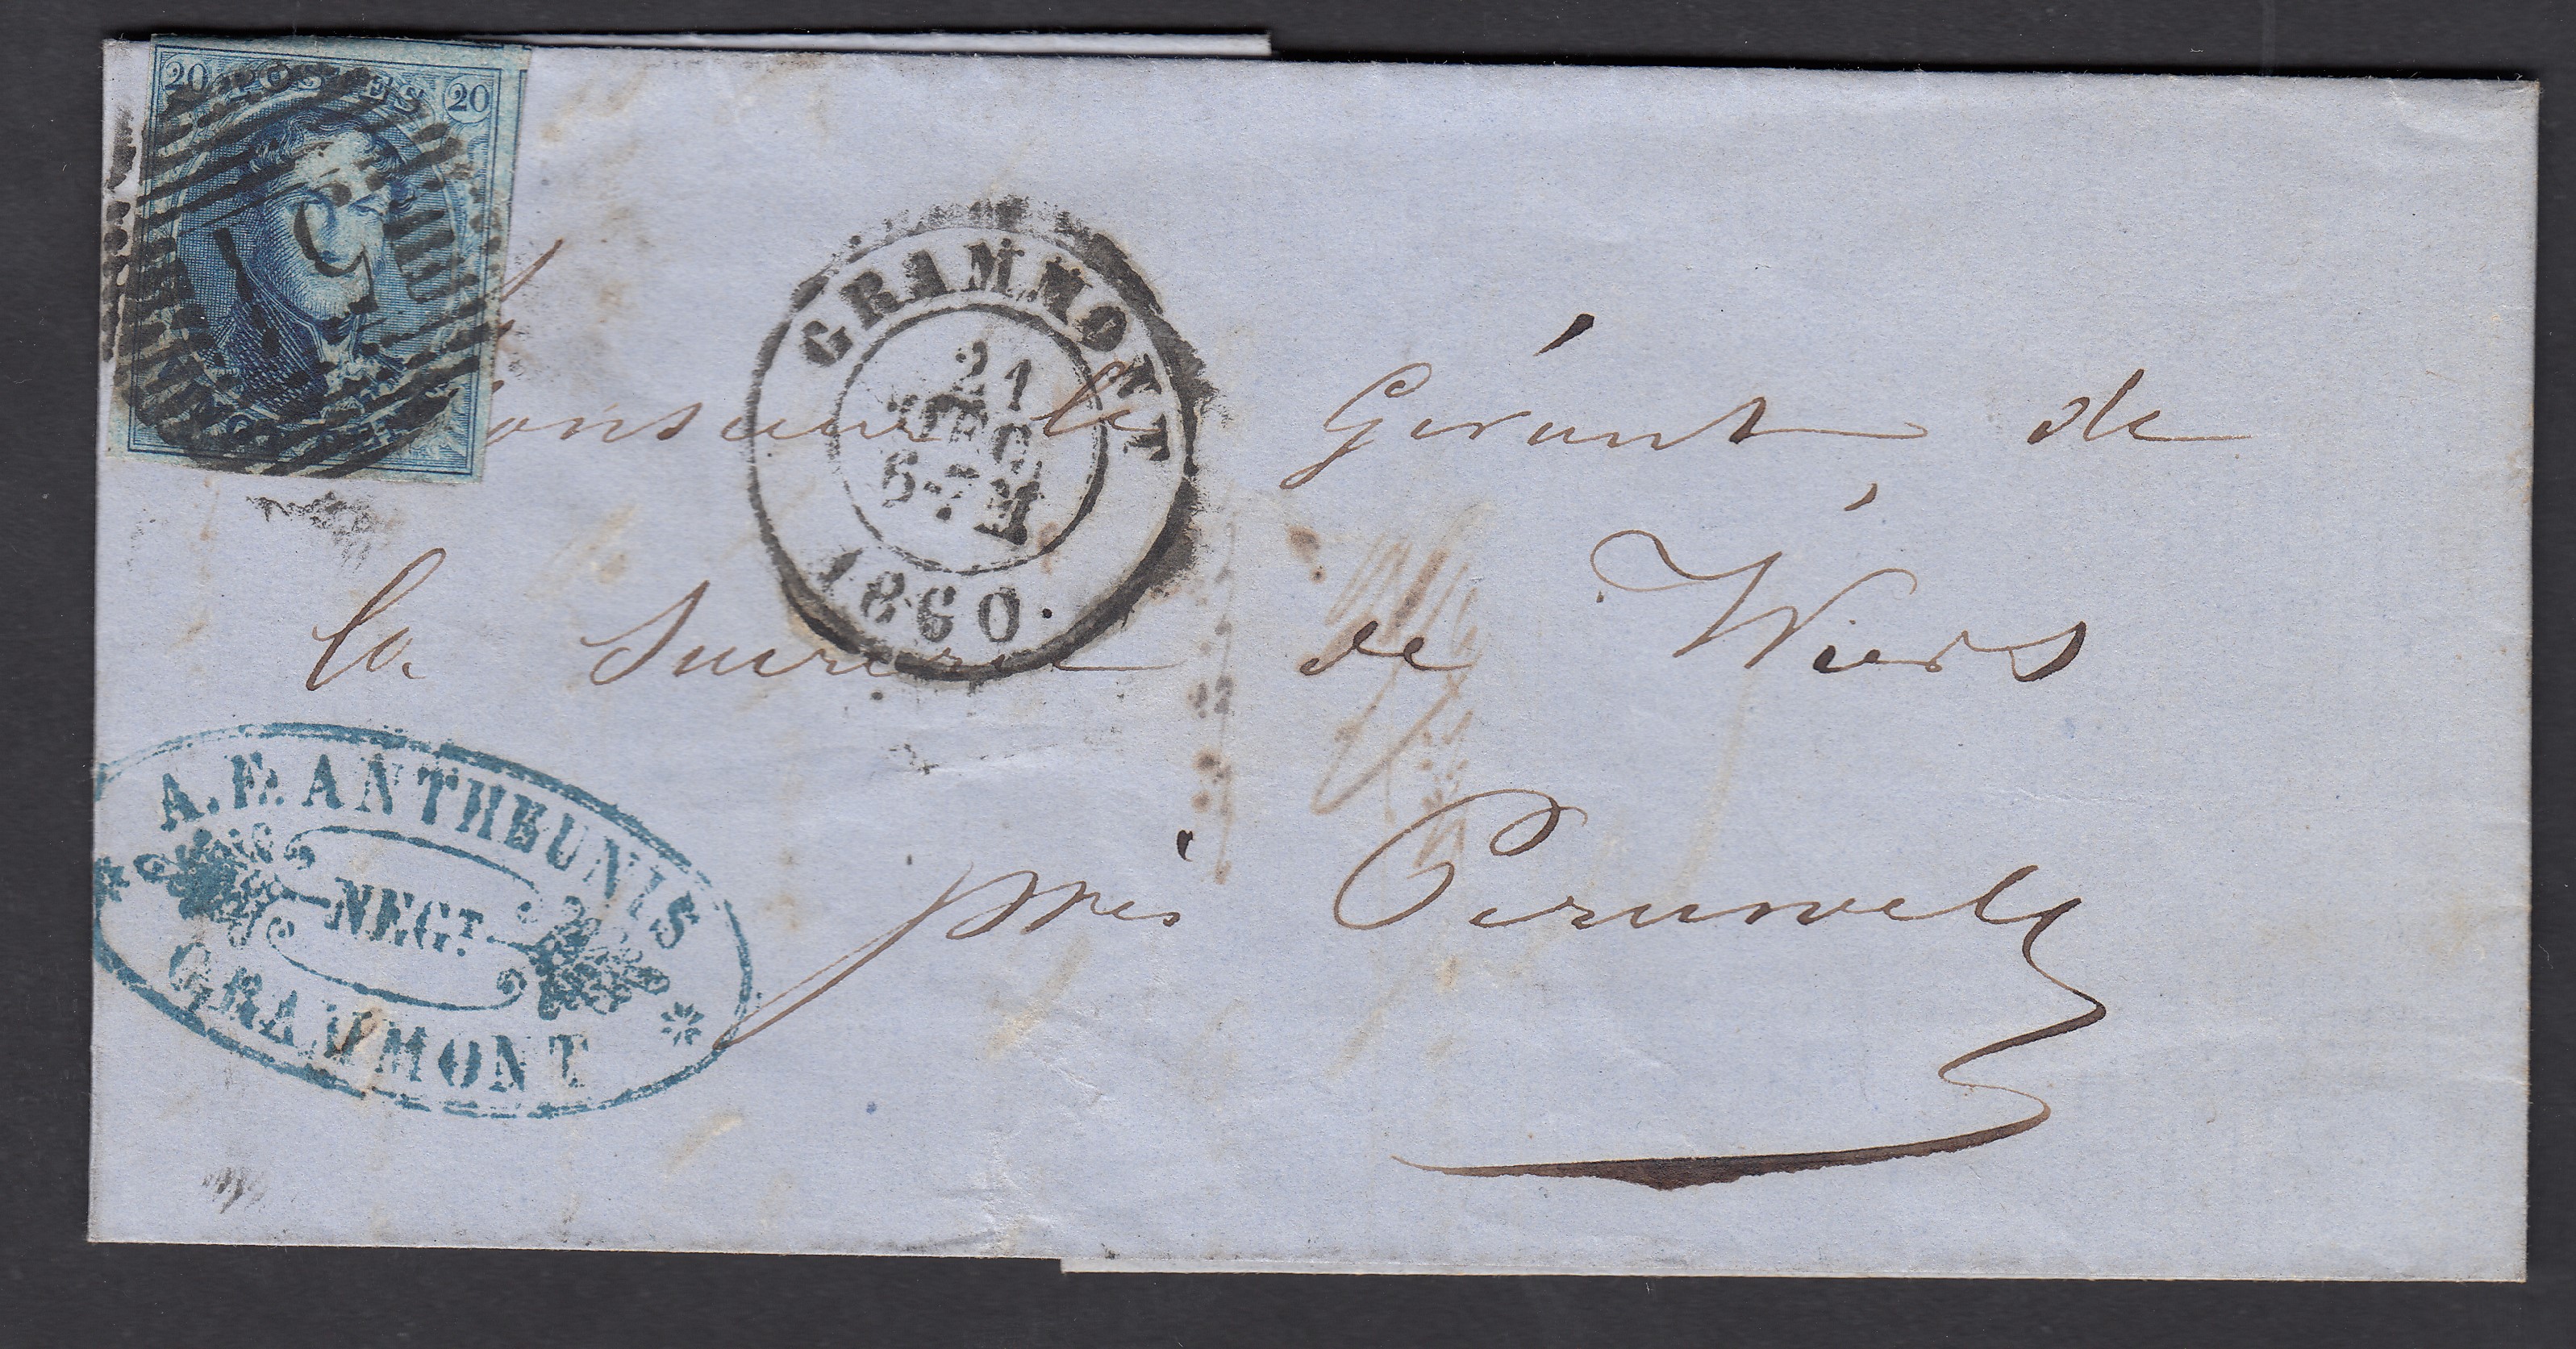 20 POSTES 20
GRAMMONT
21
DEC
5-7 M
1860
Monsieur le Gérant de
la Sucrerie de Wiers
près Peruwelz
A. F. ANTHEUNIS
NEGT.
GRAMMONT